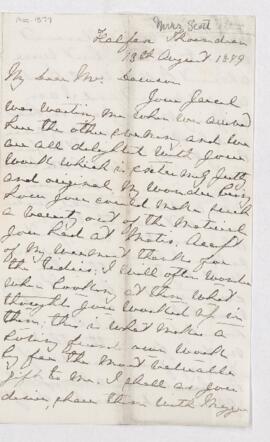 Mercy Scott
Halifax
13th August 1879
My Dear Mr. Dawson
Your parcel
was waiting me when we arrived
here the other evening, and we
are all delighted with your
work which is extremely pretty
and original. My wonder being
how you could make such
a beauty out of the material
you had at Metis. Accept
of my warmest thanks for
the Ladies; I will often wonder
when looking at them what
thoughts you worked up in
them; this is what makes a
friend own work
by far the most valuable
gift to me. I shall as you
desire, share them with Maggie